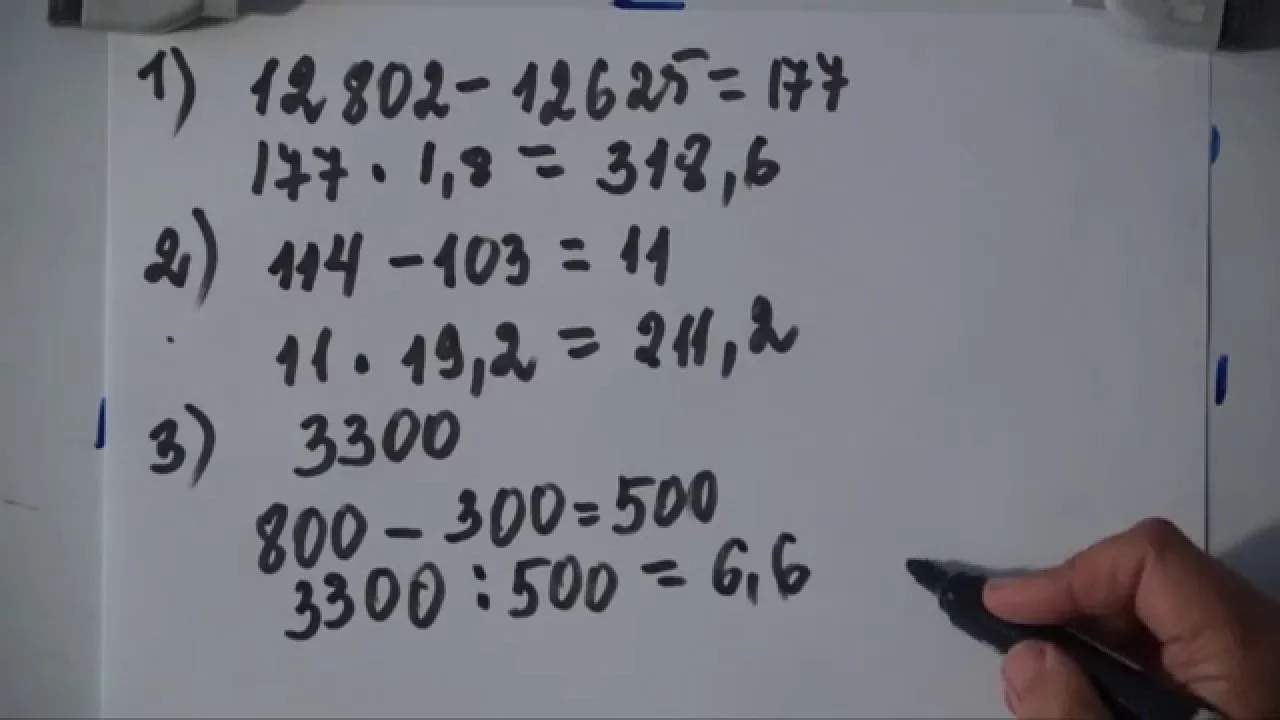 1) 12802 - 12625 = 177
177 · 1,8 = 318,6
2) 114 - 103 = 11
11 · 19,2 = 211,2
3) 3300
800 - 300 = 500
3300 : 500 = 6,6